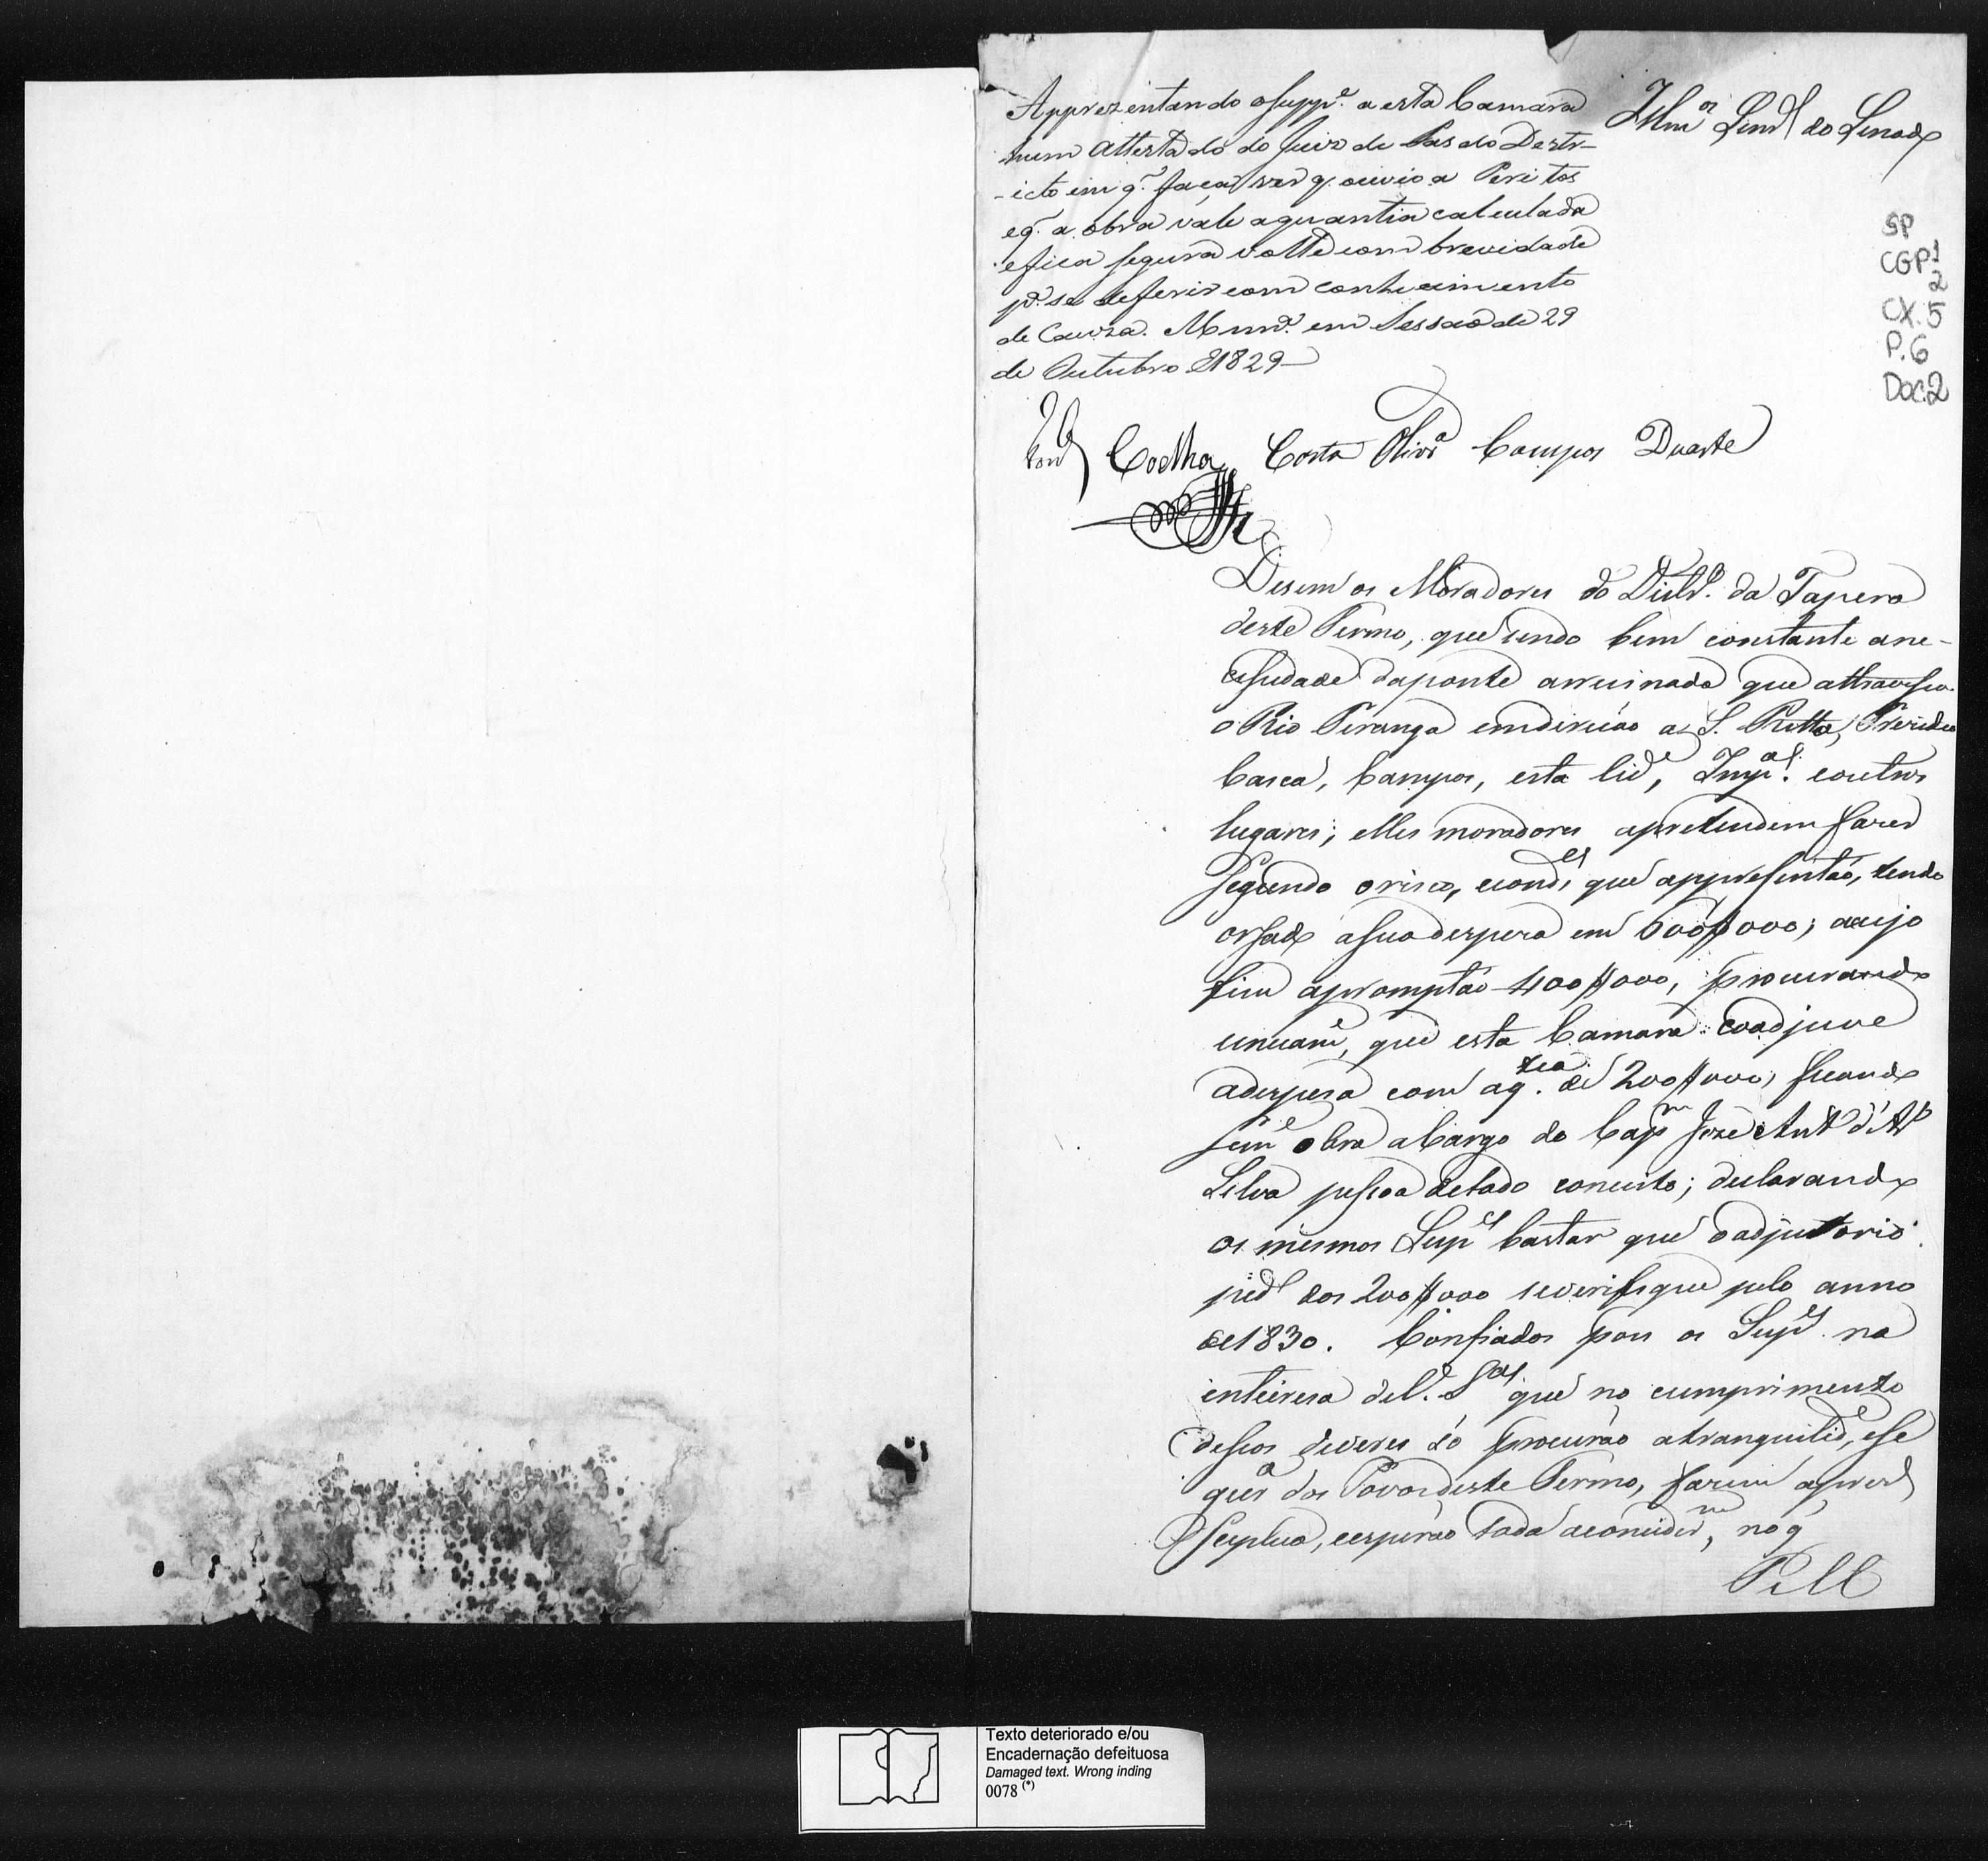 Apprezentando o Supp.e a esta Camara
hum attestado do Juiz de Pas do Destr-
-icto em q. faça ver q. ouvio a Peritos
e q. a obra vale a quantia calculada
e fica segura volte com brevidade
p.a se deferir com conhecimento
de Cauza. Marn.a em Sessaõ de 29
de Outubro d 1829
Illm.os Senr.s do Senado
SP
CGP1
2
CX.5
P.6
Doc.2
Coelho Costa Olivr.a Campos Duarte
Disem os Moradores do Distr.o da Tapera
deste Termo, que sendo bem constante ane-
cessidade daponte arruinada que attravessa
o Rio Piranga emdireião a S. Ritta, Presidio
Casca, Campos, esta Cid.e, Imp.al eoutros
lugares; elles moradores apretendem faser
segundo orisco, econd.es que appresentaõ, tendo
orsado asuadespesa em 600$000; acujo
fim apromptaõ 400$000, procurando
unicam.e, que esta Camara coadjuve
adespesa com aq.tia de 200$000, ficando
sim.e obra aCargo do Cap.m José Ant.o d'A
Silva pessoa detodo conceito; declarando
os mesmos Sup.es bastar que oadjutorio
ped.o dos 200$000 severifique pelo anno
de 1830. Confiados pois os Sup.es na
inteiresa de V. S.as que no cumprimento
deseos deveres só procuraõ atranquilid.e, ese
gur.a dos Povos deste Termo, fasem apres.e
Suplica, eesperaõ toda aconsider.m, no q
P. M
Texto deteriorado e/ou
Encadernação defeituosa
Damaged text. Wrong inding
0078 (*)